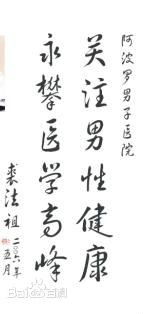 阿波罗男子医院
关注男性健康
永攀医学高峰
裘法祖
二〇〇六年
五月
Baidu百科